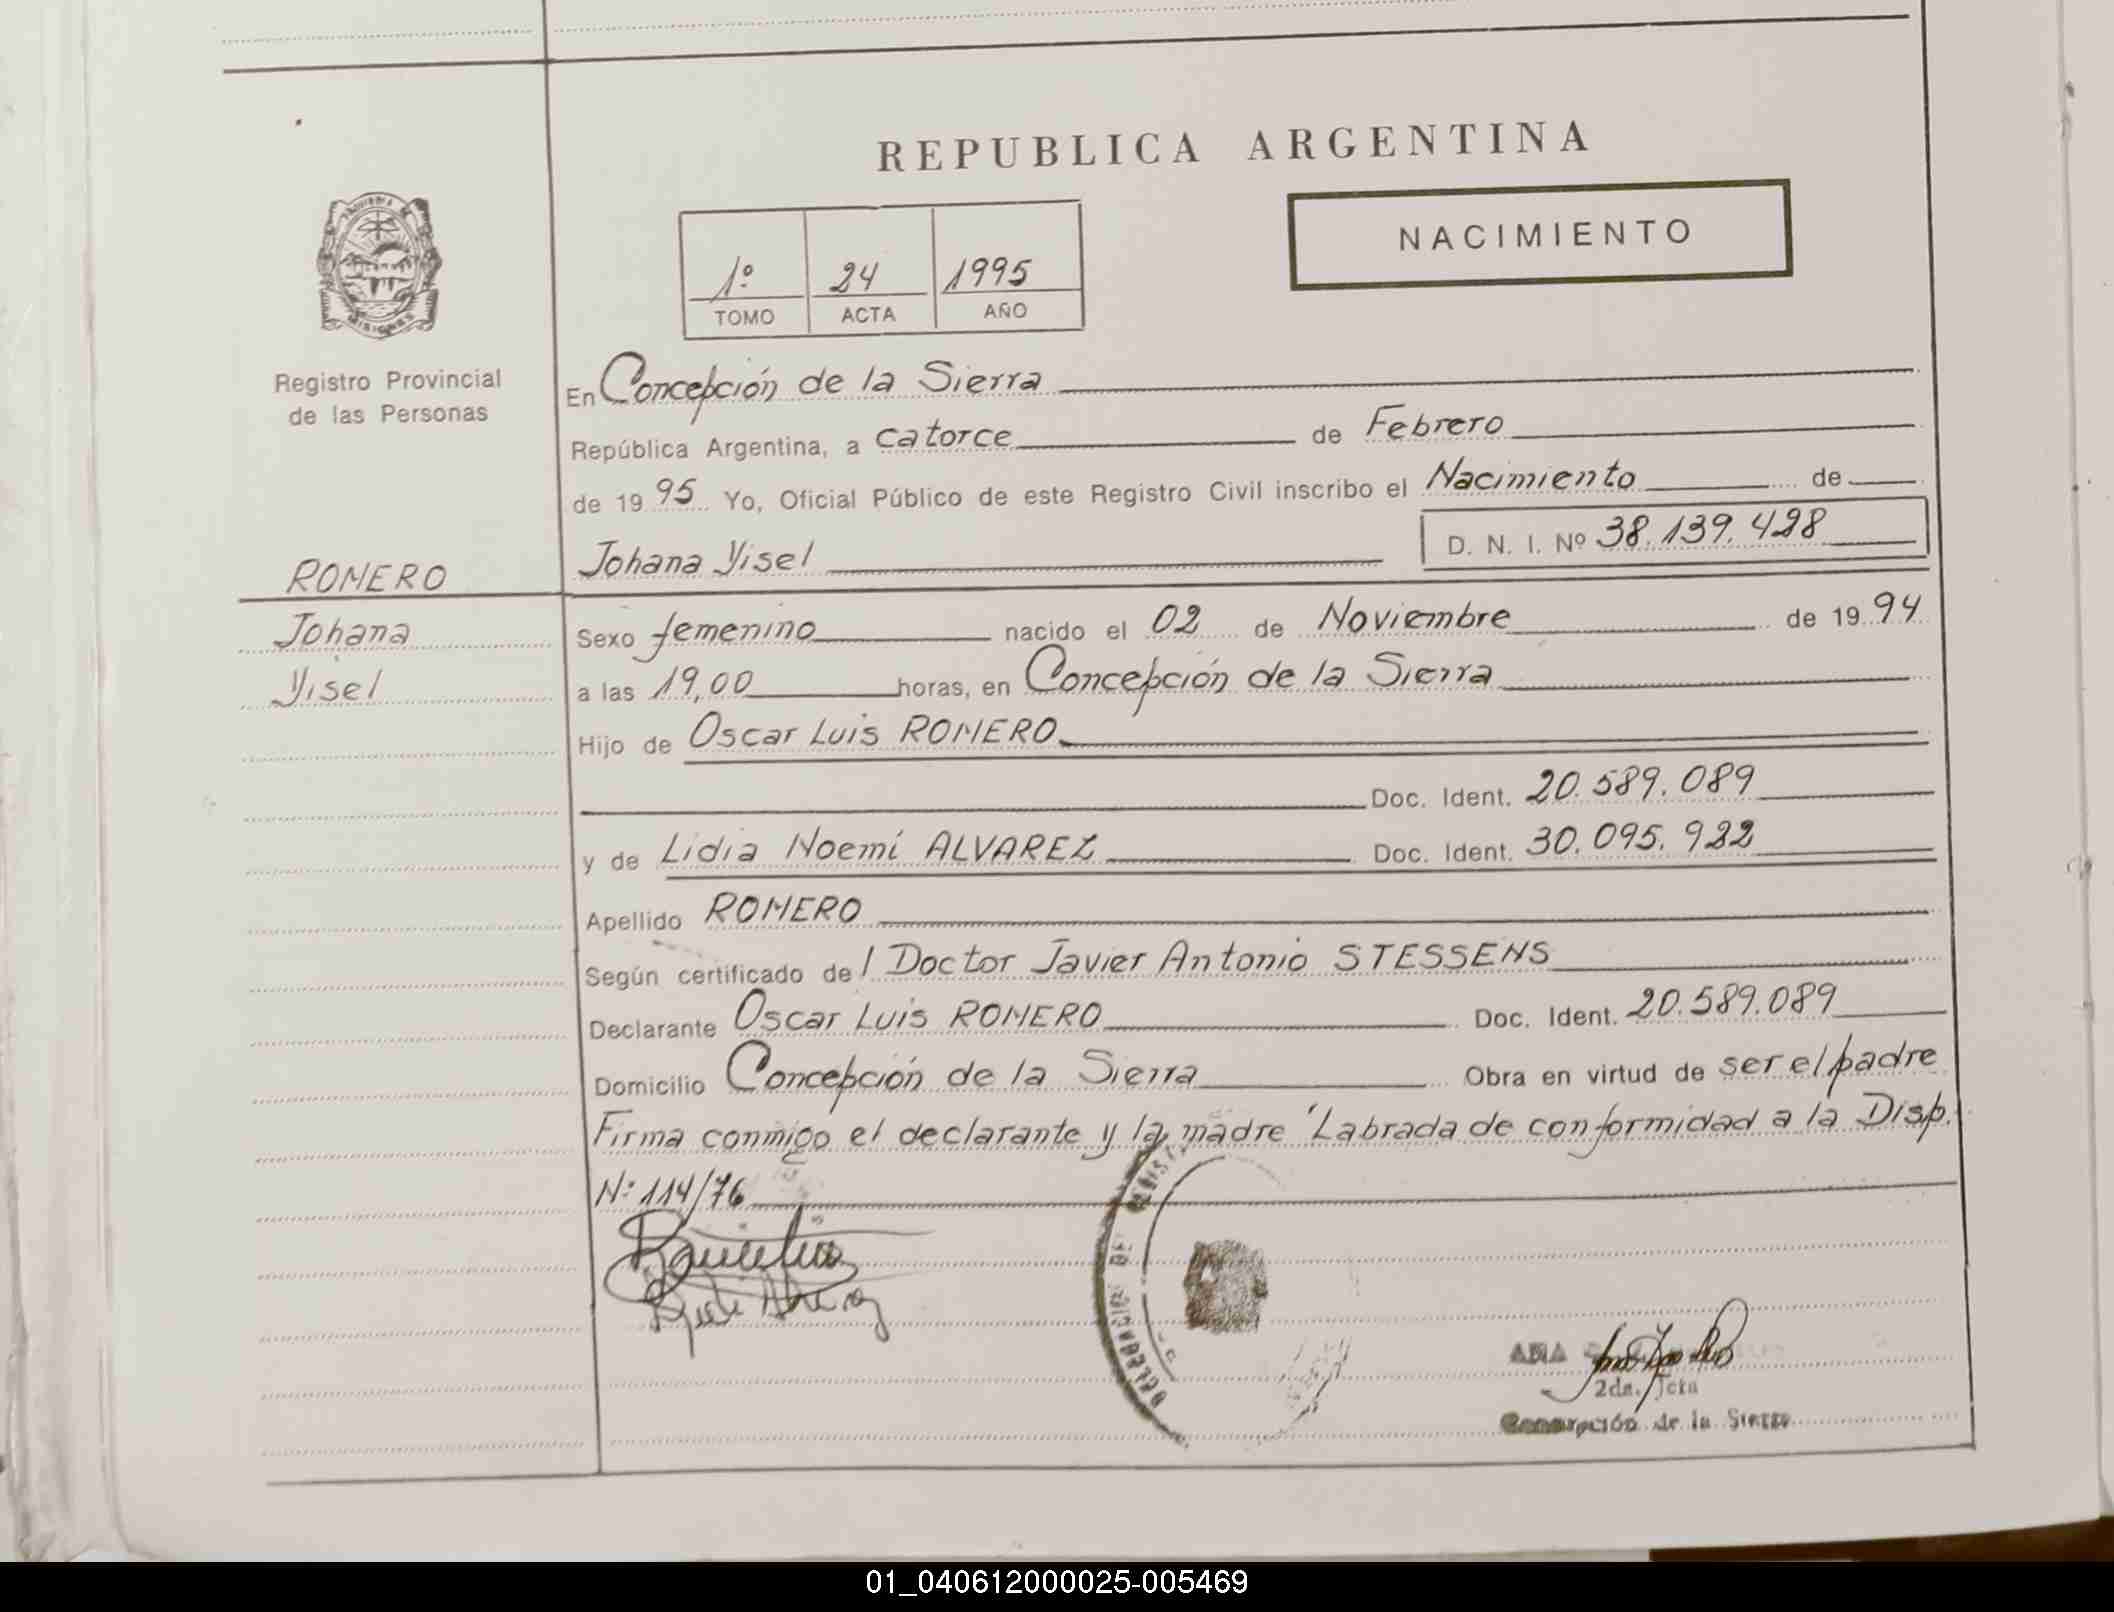 REPUBLICA ARGENTINA
NACIMIENTO
1º 24 1995
TOMO ACTA AÑO
MISIONES
Registro Provincial
de las Personas
En Concepción de la Sierra
República Argentina, a catorce de Febrero
de 19 95 Yo, Oficial Público de este Registro Civil inscribo el Nacimiento de
Johana Yisel D. N. I. Nº 38.139.428
ROMERO
Johana
Yisel
Sexo femenino nacido el 02 de Noviembre de 19 94
a las 19,00 horas, en Concepción de la Sierra
Hijo de Oscar Luis ROMERO
Doc. Ident. 20.589.089
y de Lidia Noemí ALVAREZ Doc. Ident. 30.095.922
Apellido ROMERO
Según certificado del Doctor Javier Antonio STESSENS
Declarante Oscar Luis ROMERO Doc. Ident. 20.589.089
Domicilio Concepción de la Sierra Obra en virtud de ser el padre
Firma conmigo el declarante y la madre "Labrada de conformidad a la Disp.
Nº 114/76
DELEGACION DE
ANA
2da. Jefa
Concepción de la Sierra
01_040612000025-005469